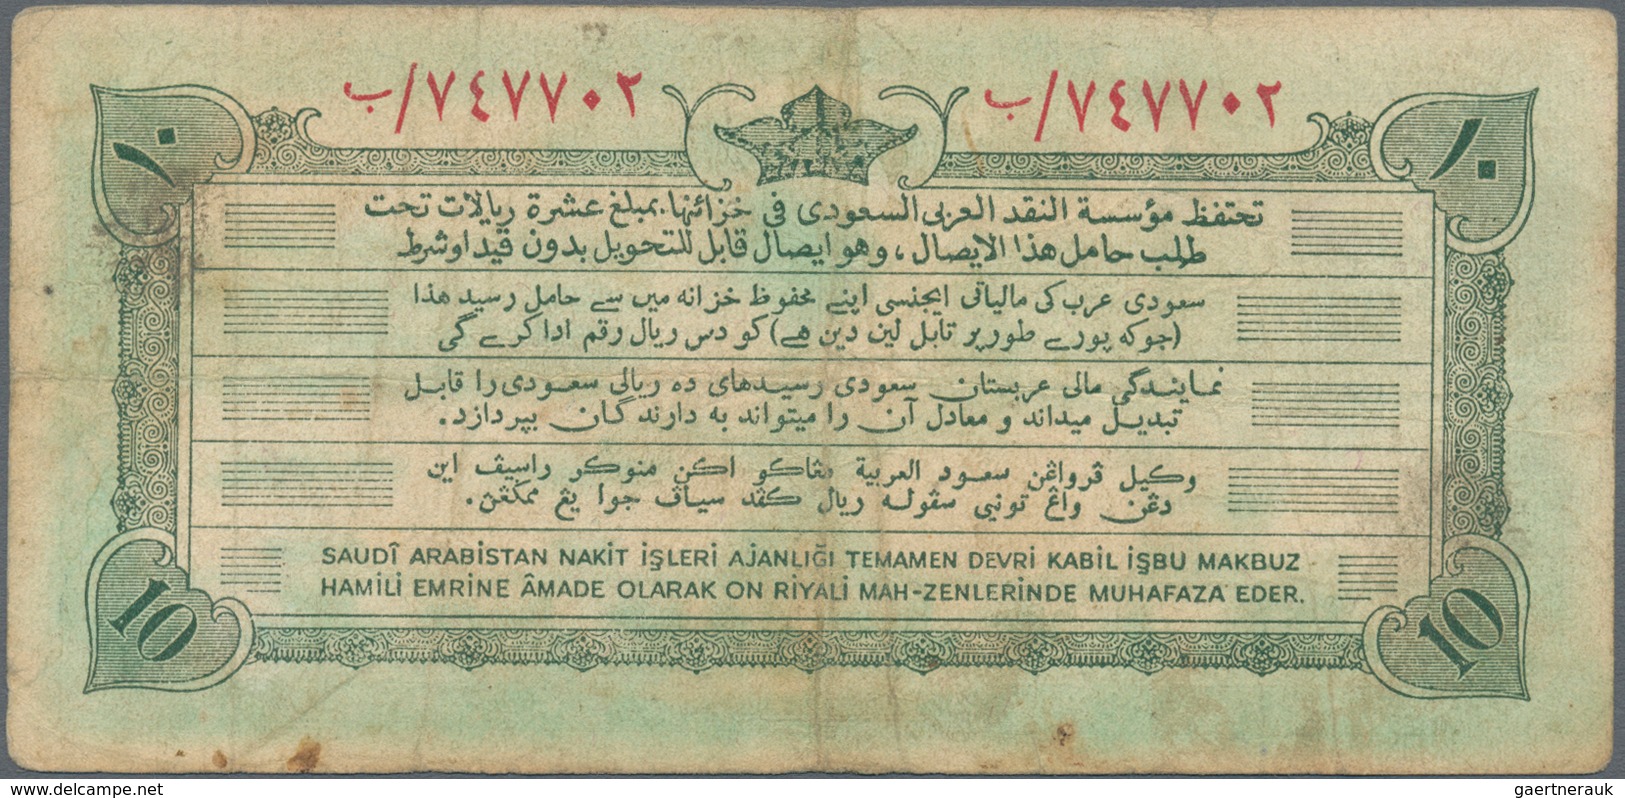 ب/٧٤٧٧٠٢
ب/٧٤٧٧٠٢
١٠
١٠
تحتفظ مؤسسة النقد العربى السعودى فى خزائنها.بمبلغ عشرة ريالات تحت
طلب حامل هذا الايصال، وهو ايصال قابل للتحويل بدون قيد او شرط
سعودی عرب کی مالیاتی ایجنسی اپنے محفوظ خزانہ میں سے حامل رسید هذا
(جو کہ پورے طور پر قابل لین دین ھے) کو دس ریال رقم ادا کرے گی
نمایندگی مالی عربستان سعودی رسیدهای ده ریالی سعودی را قابل
تبدیل میداند و معادل آن را میتواند به دارندگان بپردازد.
وكيل ڤرواڠن سعود العربية مڠاكو اكن منوكر راسيڤ اين
دڠن واڠ تونى سڤوله ريال كڤد سياڤ جوا يڠ ممڬڠن.
SAUDÎ ARABİSTAN NAKİT İŞLERİ AJANLIĞI TEMAMEN DEVRİ KABİL İŞBU MAKBUZ
HAMİLİ EMRİNE ÂMADE OLARAK ON RİYALİ MAH-ZENLERİNDE MUHAFAZA EDER.
10
10
www.delcampe.net
gaertnerauk